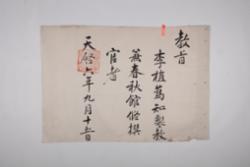 教旨
李植爲知製教
兼春秋館修撰
官者
天啓六年九月十五日